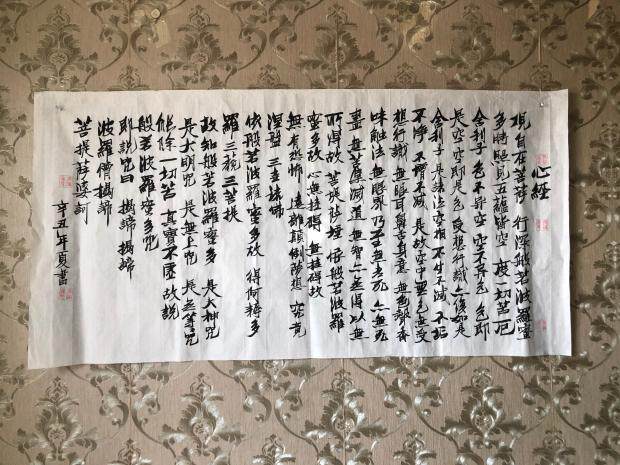 心经
观自在菩萨 行深般若波羅蜜
多時照見五蕴皆空 度一切苦厄
舍利子 色不异空 空不异色 色即
是空 空即是色 受想行識 亦復如是
舍利子 是諸法空相 不生不滅 不垢
不净 不增不減 是故空中無色無受
想行識 無眼耳鼻舌身意 無色聲香
味触法 無眼界乃至無老死 亦無死
盡 無苦集滅道 無智亦無得 以無
所得故 菩提萨埵 依般若波羅
蜜多故 心無挂碍 無挂碍故
無有恐怖 遠離顛倒夢想 究竟
涅盤 三世諸佛
依般若波羅蜜多故 得阿耨多
羅三藐三菩提
故知般若波羅蜜多 是大神咒
是大明咒 是無上咒 是無等咒
能除一切苦 真實不虚 故説
般若波羅蜜多咒
即説咒曰 揭諦 揭諦
波羅僧揭諦
菩提莎婆訶
辛丑年夏書